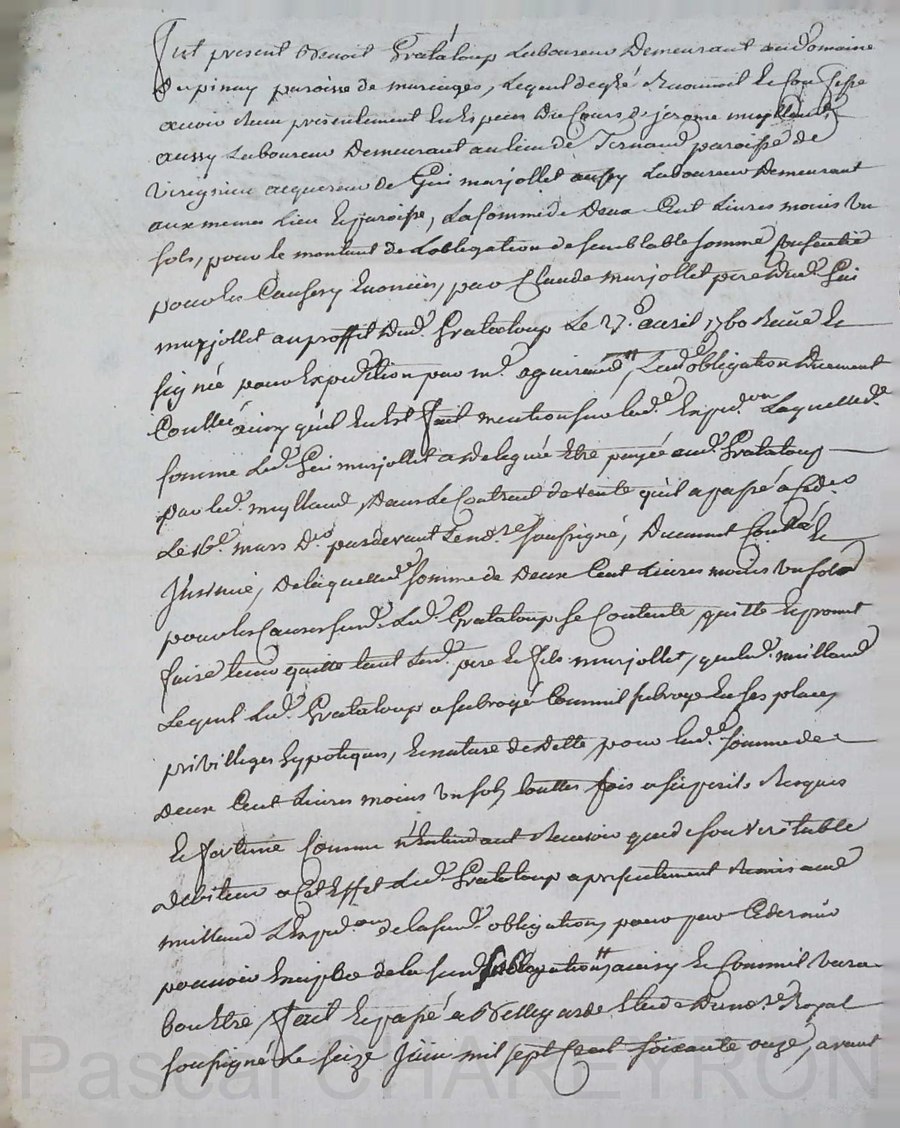 fut present Benoit Grataloup Laboureur Demeurant au Domaine
Dupinay paroisse de maringes, Lequel de gré Reconnoit et Confesse
avoir Receu présentement En Especes Du Cours de jerome muilland,
aussy Laboureur Demeurant au lieu de Fernand paroisse de
virignieu acquereur de Gui murjollet aussy Laboureur Demeurant
aux memes Lieu et paroisse, La somme de Deux Cent Livres moins un
sols, pour le montant de Lobligation de semblable somme
pour les Causes y Enoncées, par Claude murjollet pere dud. Gui
murjollet au proffit Dud. Grataloup Le 27e. avril 1760 Receüe et
signée pour Expedition par me. aguiraud, Lad. obligation Duement
Conllée ainsy quil En Est fait mention sur lad. Expedon. Laquelle de.
somme Led. Gui murjollet a Deleguée Etre payée aud. Grataloup
par led. muylland, Dans Le Contract de vente quil a passé a Ced.
Le 16e. mars Dr. pardevant Le nore. soussigné, Duement Conllé Et
Insinué, De laquelle de. somme de Deux Cent Livres moins un sols
pour les Causes susd. Led. Grataloup se Contente, quitte Et promet
faire tenir quitte tant Lesd. pere et fils murjollet, que led. muilland
Lequel Led. Grataloup a subrogé Comme il subroge En ses places,
privilleges hypoteques, Et nature de Dette, pour lad. somme de
Deux Cent Livres moins un sols touttes fois a ses perils Risques
et fortune Comme n'Entendant Recevoir que de son veritable
Debiteur a Cet Effet Led. Grataloup a presentement Remis aud.
muilland L'Expedon. de la susd. obligation, pour par Ce dernier
pouvoir de la susd. obligation, ainsy Et Comme il verra
bon Etre, fait Et passé a Bellegarde Etude Du nore. Royal
soussigné Le seize Juin mil sept Cent soixante onze, avant
Pascal CHAREYRON